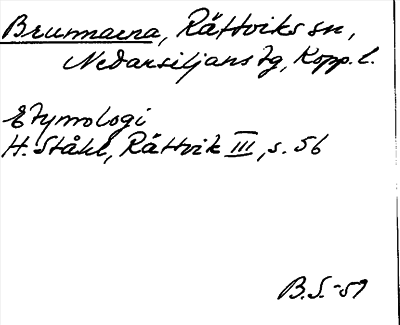 Brunnarna, Rättviks sn,
Nedansiljans tg, Kopp. l.
Etymologi
H. Ståhl, Rättvik III, s. 56
B.S. -59